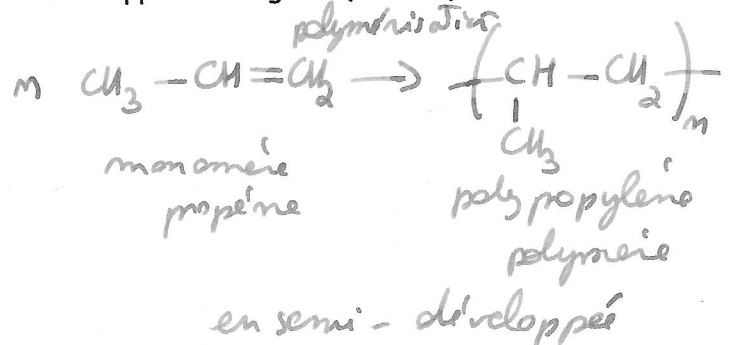 polymérisation
n CH3 – CH = CH2 → –( CH – CH2 )–n
CH3
monomère
propène
polypropylène
polymère
en semi-développée